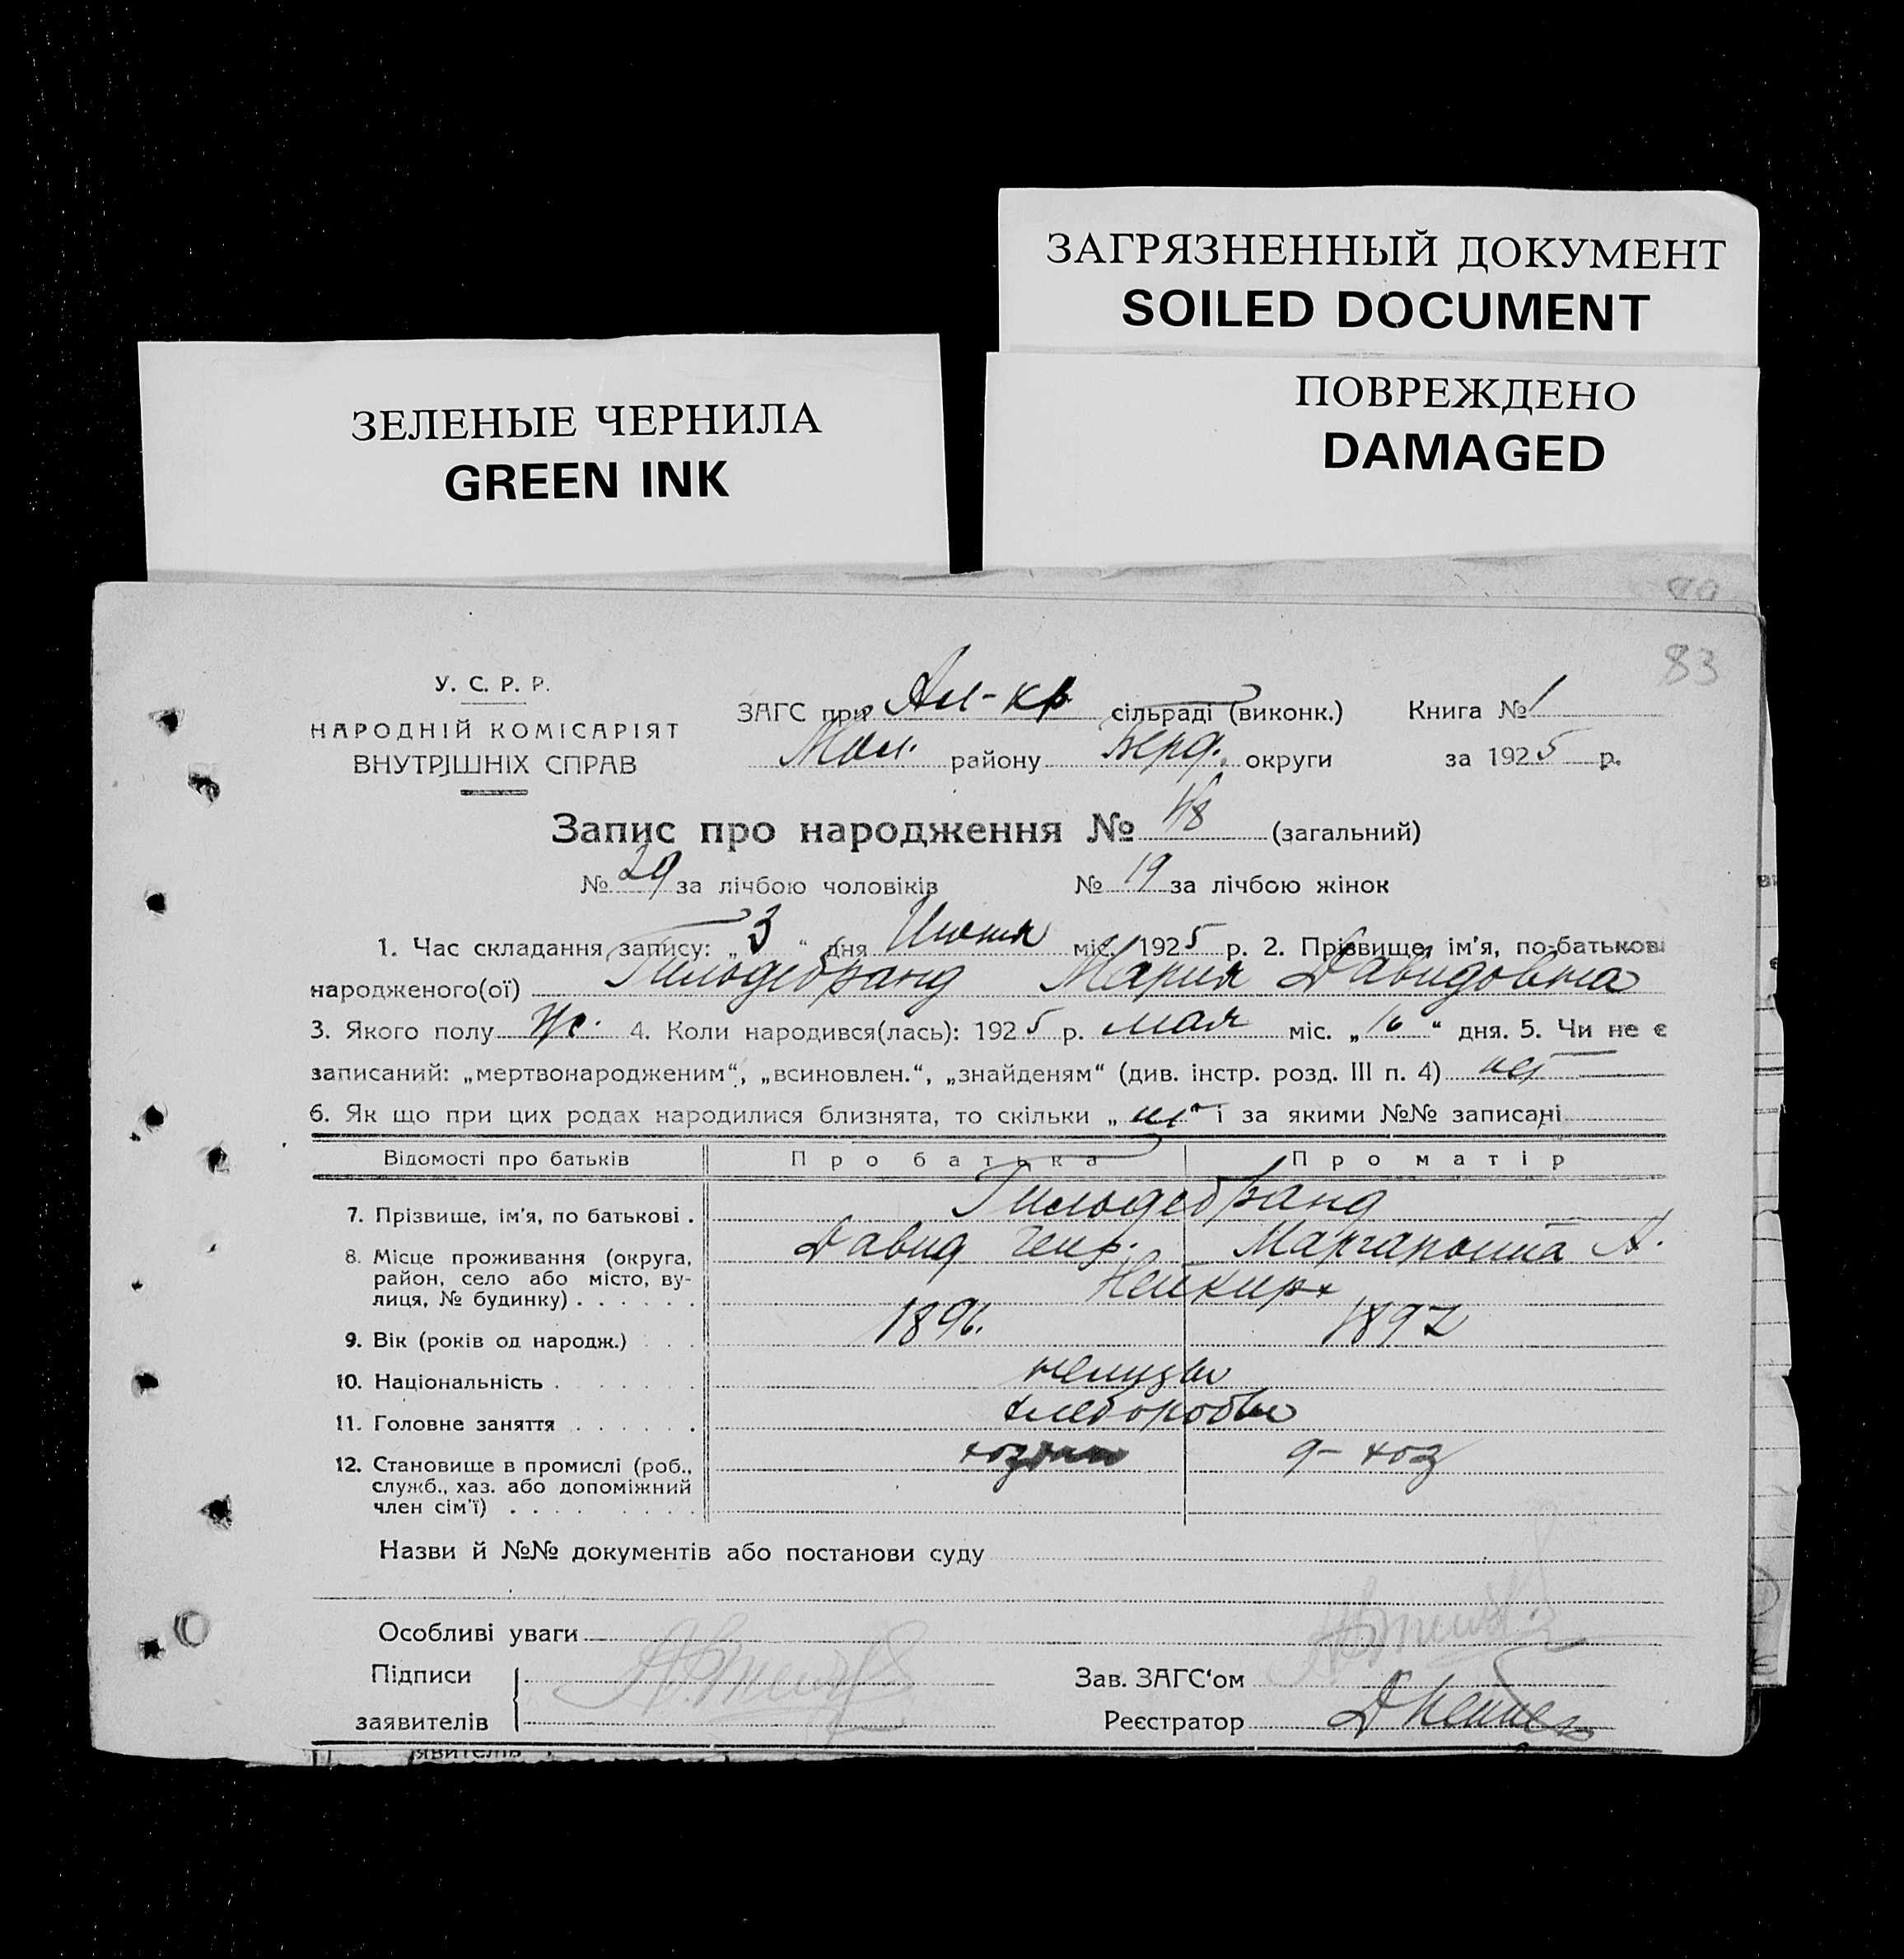 ЗАГРЯЗНЕННЫЙ ДОКУМЕНТ
SOILED DOCUMENT
ЗЕЛЕНЫЕ ЧЕРНИЛА
GREEN INK
ПОВРЕЖДЕНО
DAMAGED
83
У. С. Р. Р.
НАРОДНІЙ КОМІСАРІЯТ
ВНУТРІШНІХ СПРАВ
ЗАГС при Ал-кр сільраді (виконк.) Книга № 1
Мол. району Берд. округи за 1925 р.
Запис про народження № 48 (загальний)
№ 29 за лічбою чоловіків № 19 за лічбою жінок
1. Час складання запису: „3“ дня Июня міс. 1925 р. 2. Прізвище, ім'я, по-батькові
народженого(ої) Гильдебранд Мария Давидовна
3. Якого полу ж. 4. Коли народився(лась): 1925 р. мая міс. „16“ дня. 5. Чи не є
записаний: „мертвонародженим“, „всиновлен.“, „знайденям“ (див. інстр. розд. III п. 4) нет
6. Як що при цих родах народилися близнята, то скільки „нет“ і за якими №№ записані
Відомості про батьків Про батька Про матір
7. Прізвище, ім'я, по батькові . Гильдебранд
Давид Генр. Маргарита А.
8. Місце проживання (округа, район, село або місто, вулиця, № будинку) . . . . . . Нейкирх
9. Вік (років од народж.) . . . 1896. 1897
10. Національність . . . . . . . немцы
11. Головне заняття . . . . . . хлеборобы
12. Становище в промислі (роб., служб., хаз. або допоміжний член сім'ї) . . . . . . . . хозяин д-хоз
Назви й №№ документів або постанови суду
Особливі уваги
Підписи
заявителів
Зав. ЗАГС'ом
Реєстратор